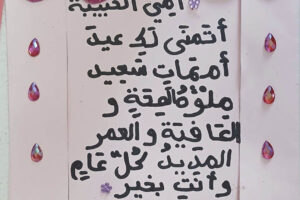 أمي الحبيبة
أتمنى لكِ عيد
أمهات سعيد
ملؤه الصحة و
العافية والعمر
المديد كُلّ عام
وأنتِ بخير